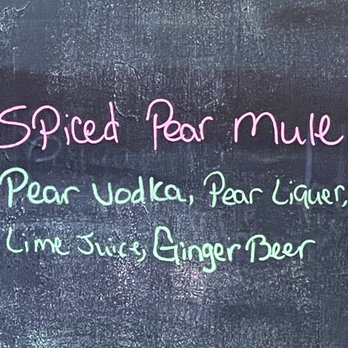 Spiced Pear Mule
Pear Vodka, Pear Liquer,
Lime Juice, Ginger Beer